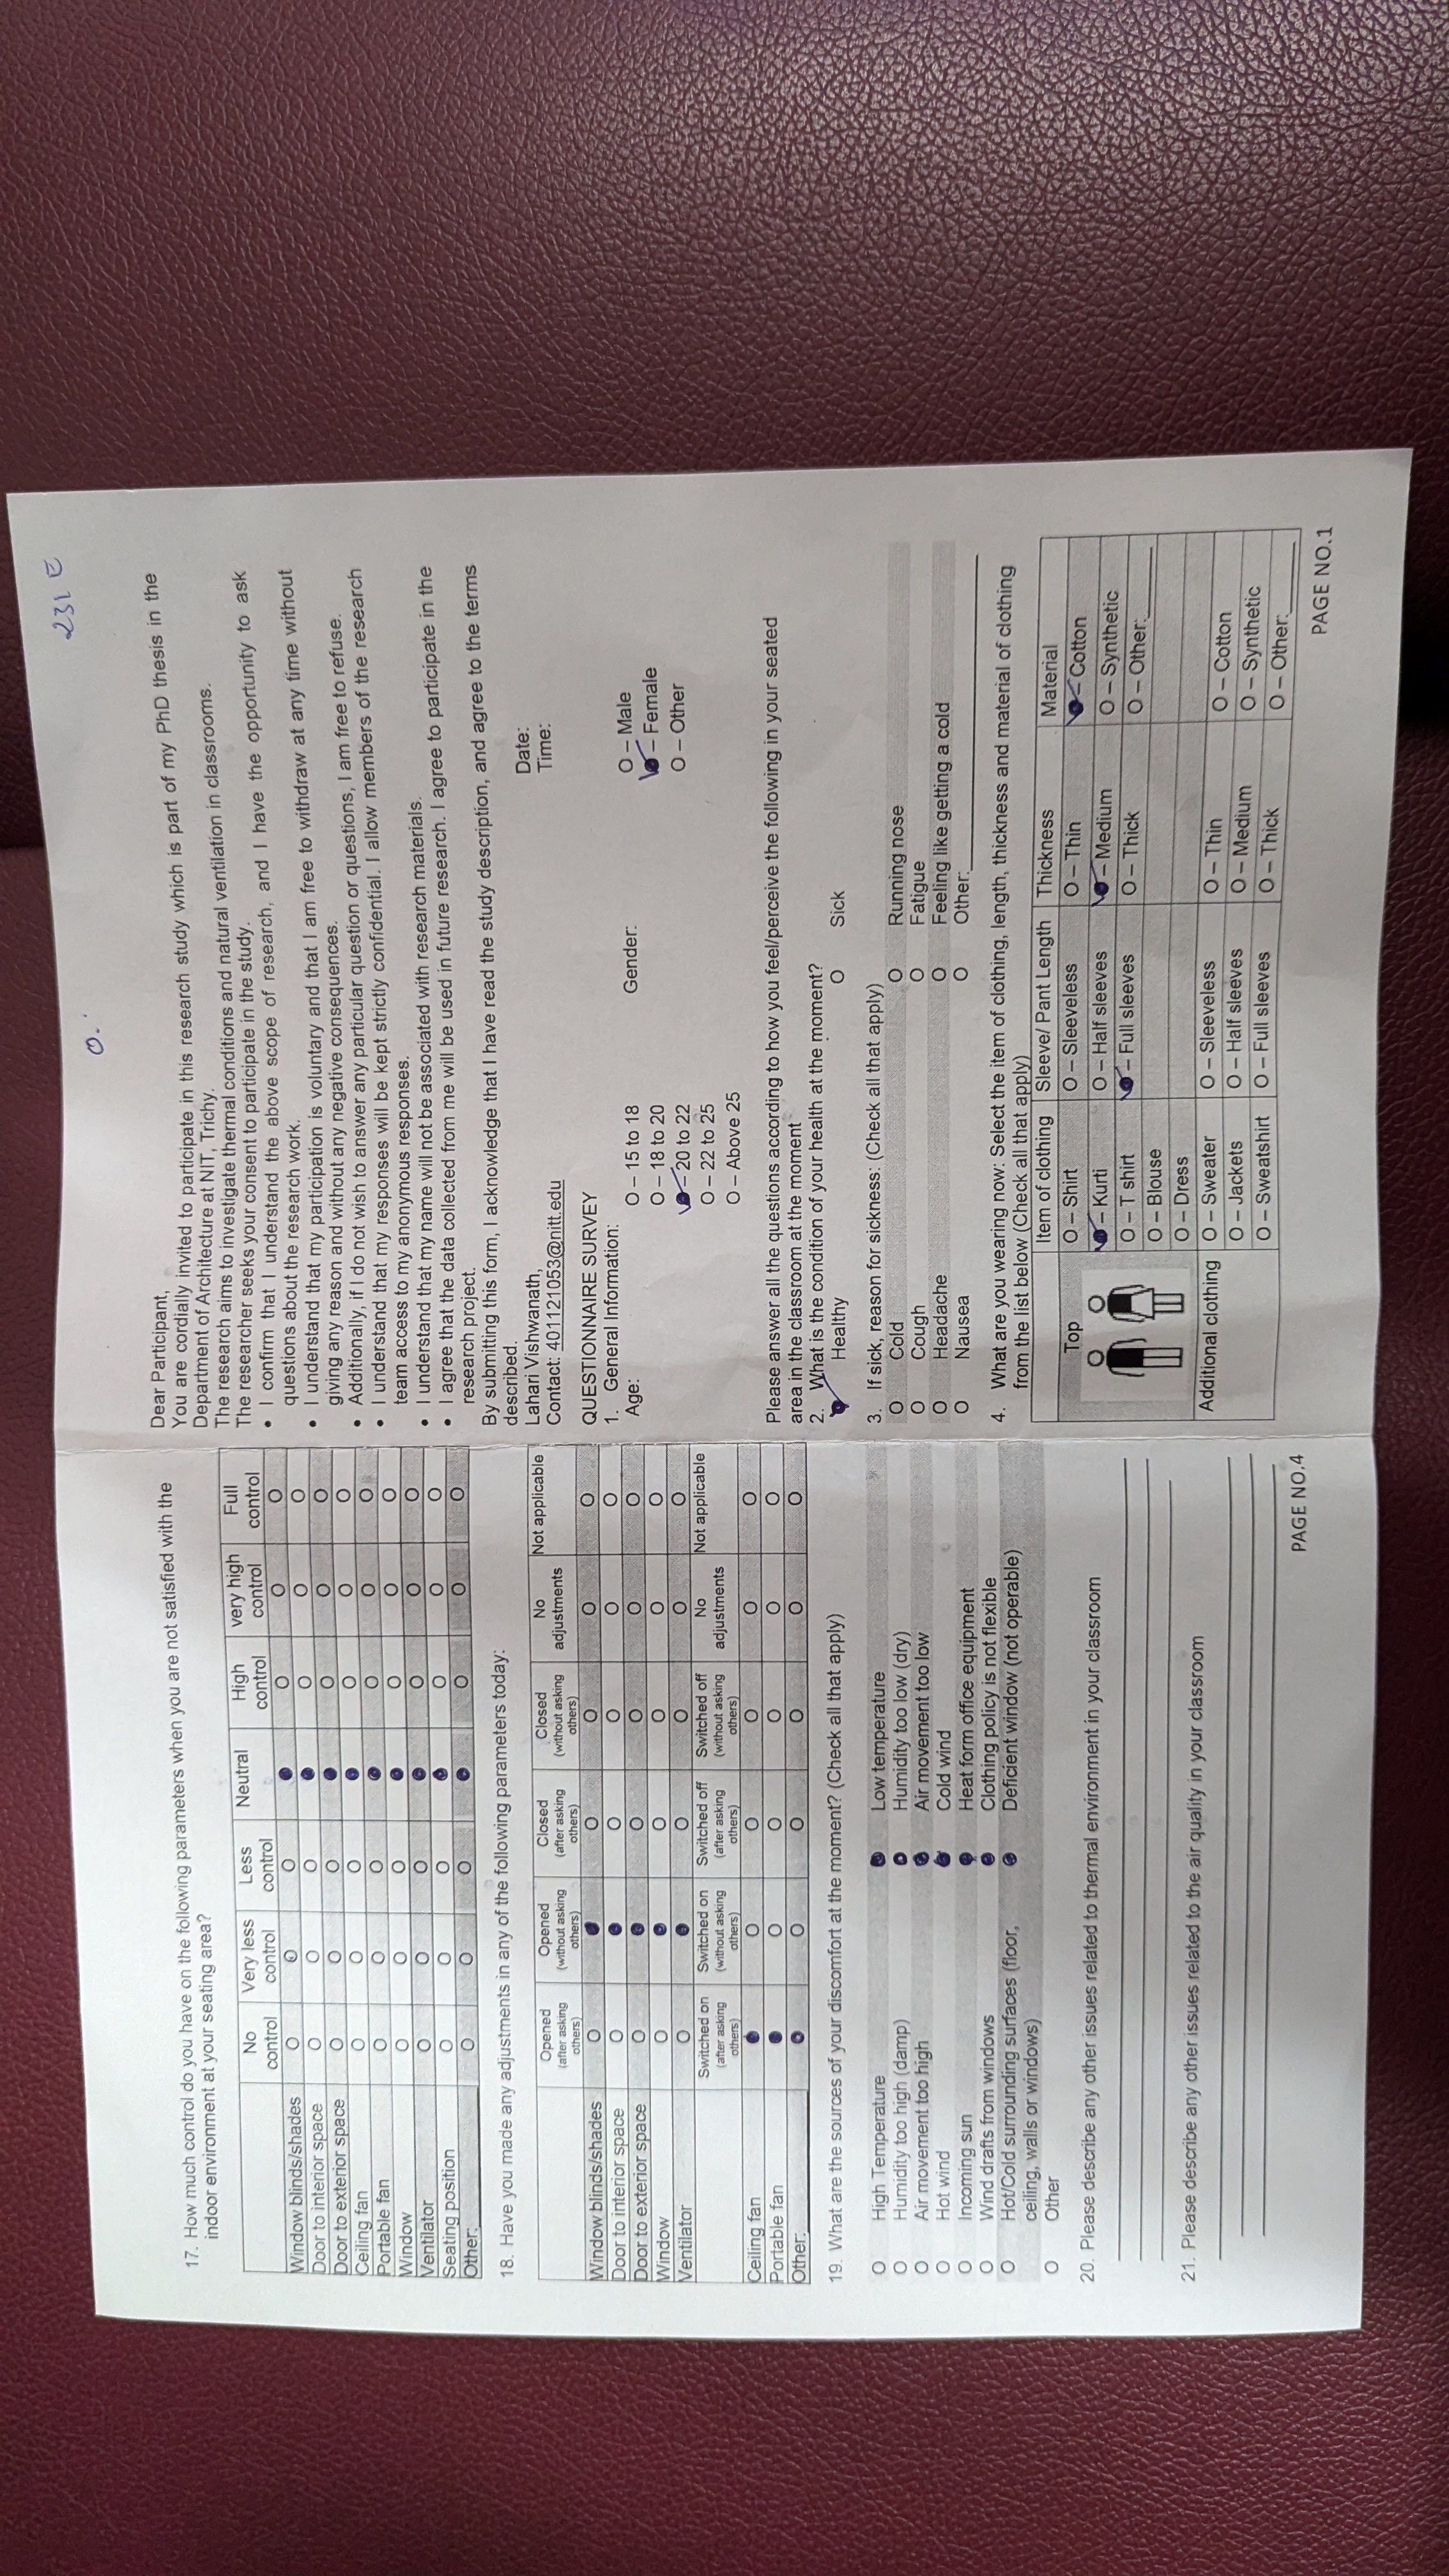 17. How much control do you have on the following parameters when you are not satisfied with the
indoor environment at your seating area?
No control Very less control Less control Neutral High control very high control Full control
Window blinds/shades O O O ● O O O
Door to interior space O O O ● O O O
Door to exterior space O O O ● O O O
Ceiling fan O O O ● O O O
Portable fan O O O ● O O O
Window O O O ● O O O
Ventilator O O O ● O O O
Seating position O O O ● O O O
Other:________ O O O ● O O O
18. Have you made any adjustments in any of the following parameters today:
Opened (after asking others) Opened (without asking others) Closed (after asking others) Closed (without asking others) No adjustments Not applicable
Window blinds/shades O ● O O O O
Door to interior space O ● O O O O
Door to exterior space O ● O O O O
Window O ● O O O O
Ventilator O ● O O O O
Switched on (after asking others) Switched on (without asking others) Switched off (after asking others) Switched off (without asking others) No adjustments Not applicable
Ceiling fan ● O O O O O
Portable fan ● O O O O O
Other:________ ● O O O O O
19. What are the sources of your discomfort at the moment? (Check all that apply)
O High Temperature ● Low temperature
O Humidity too high (damp) ● Humidity too low (dry)
O Air movement too high ● Air movement too low
O Hot wind ● Cold wind
O Incoming sun ● Heat form office equipment
O Wind drafts from windows ● Clothing policy is not flexible
O Hot/Cold surrounding surfaces (floor, ● Deficient window (not operable)
ceiling, walls or windows)
O Other
20. Please describe any other issues related to thermal environment in your classroom
21. Please describe any other issues related to the air quality in your classroom
PAGE NO.4
231 E
O.
Dear Participant,
You are cordially invited to participate in this research study which is part of my PhD thesis in the
Department of Architecture at NIT, Trichy.
The research aims to investigate thermal conditions and natural ventilation in classrooms.
The researcher seeks your consent to participate in the study.
• I confirm that I understand the above scope of research, and I have the opportunity to ask
questions about the research work.
• I understand that my participation is voluntary and that I am free to withdraw at any time without
giving any reason and without any negative consequences.
• Additionally, if I do not wish to answer any particular question or questions, I am free to refuse.
• I understand that my responses will be kept strictly confidential. I allow members of the research
team access to my anonymous responses.
• I understand that my name will not be associated with research materials.
• I agree that the data collected from me will be used in future research. I agree to participate in the
research project.
By submitting this form, I acknowledge that I have read the study description, and agree to the terms
described.
Lahari Vishwanath, Date:
Contact: 401121053@nitt.edu Time:
QUESTIONNAIRE SURVEY
1. General Information:
Age: O – 15 to 18 Gender: O – Male
O – 18 to 20 ● – Female
● – 20 to 22 O – Other
O – 22 to 25
O – Above 25
Please answer all the questions according to how you feel/perceive the following in your seated
area in the classroom at the moment
2. What is the condition of your health at the moment?
● Healthy O Sick
3. If sick, reason for sickness: (Check all that apply)
O Cold O Running nose
O Cough O Fatigue
O Headache O Feeling like getting a cold
O Nausea O Other:________
4. What are you wearing now: Select the item of clothing, length, thickness and material of clothing
from the list below (Check all that apply)
Item of clothing Sleeve/ Pant Length Thickness Material
Top O – Shirt O – Sleeveless O – Thin ● – Cotton
● – Kurti O – Half sleeves ● – Medium O – Synthetic
O – T shirt ● – Full sleeves O – Thick O – Other:________
O – Blouse
O – Dress
Additional clothing O – Sweater O – Sleeveless O – Thin O – Cotton
O – Jackets O – Half sleeves O – Medium O – Synthetic
O – Sweatshirt O – Full sleeves O – Thick O – Other:________
PAGE NO.1